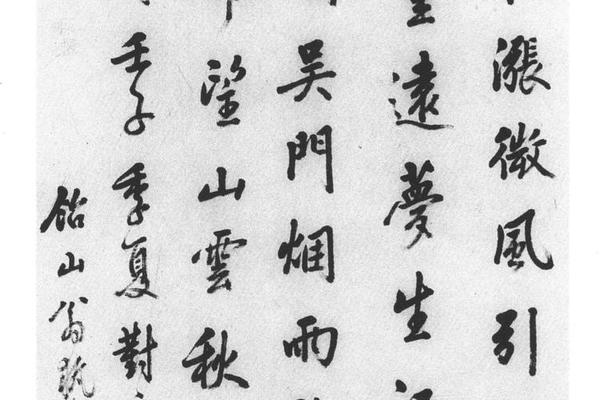 漲微風引
遠夢生
吳門烟雨
望山雲秋
壬子季夏對
飴山翁執